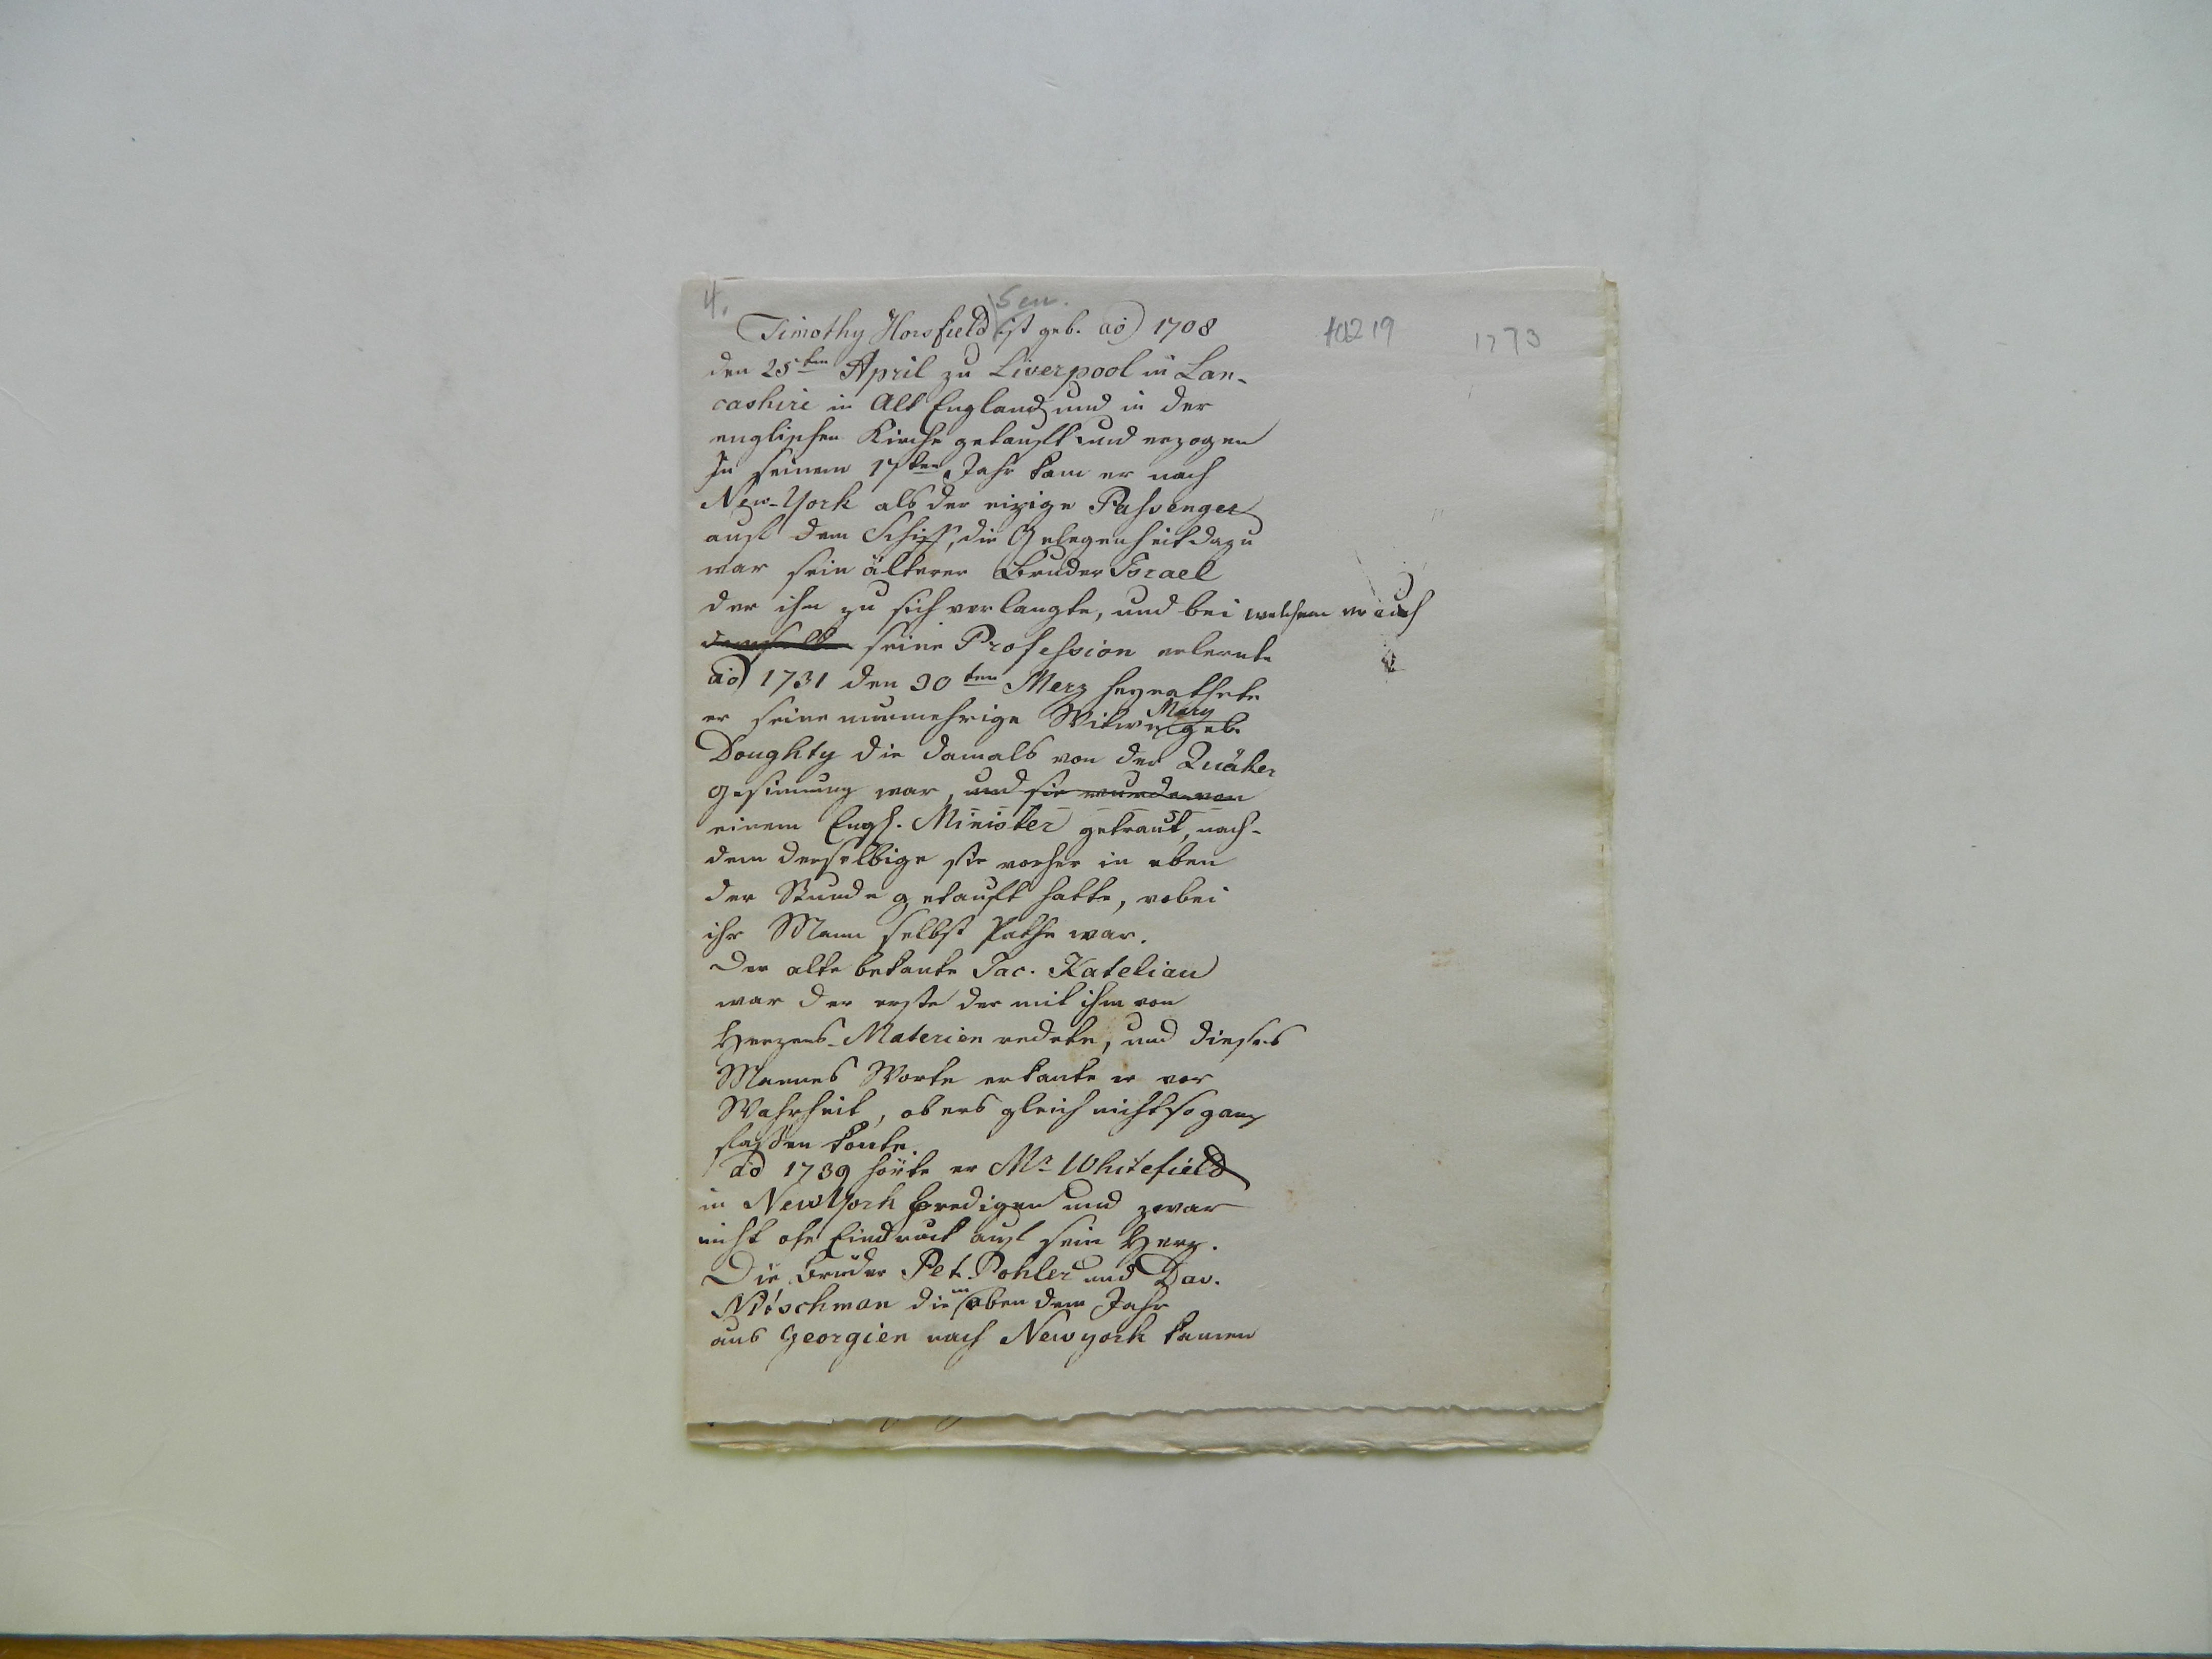 4.
Sen.
Timothy Horsfield ist geb. aö 1708
10219 1773
den 25ten April zu Liverpool in Lan-
cashire in Alt England und in der
englischen Kirche getauft und erzogen
In seinem 17ten Jahr kam er nach
New-York als der eizige Passenger
auf dem Schiff, die Gelegenheit dazu
war sein älterer Bruder Israel
der ihn zu sich verlangte, und bei welchem er auch
demselben seine Profession erlernte
aö 1731 den 30ten Merz heyrathete
er seine nunmehrige Witwe Mary geb.
Doughty die damals von der Quäker
gesinnung war, und sie wurde von
einem Engl. Minister getraut, nach-
dem derselbige sie vorher in eben
der Stunde getauft hatte, wobei
ihr Mann selbst Pathe war.
Der alte bekante Jac. Katelian
war der erste der mit ihm von
Herzens-Materien redete, und dieses
Mannes Worte erkante er vor
Wahrheit, ob ers gleich nicht so ganz
fassen konte.
aö 1739 hörte er Mr Whitefield
in NewYork predigen und zwar
nicht ohe Eindruck auf sein Herz.
Die Brüder Pet. Pohler und Dav.
Nitschman die in eben dem Jahr
aus Georgien nach Newyork kamen